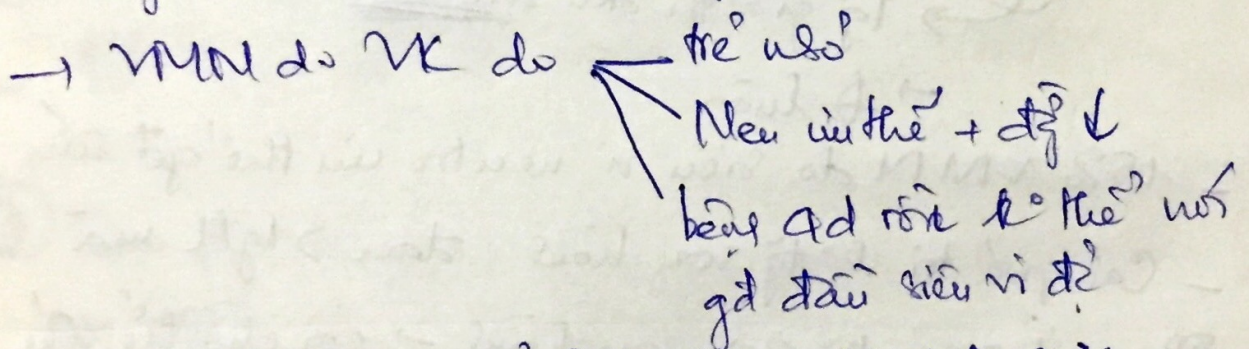 → VMN do VK do
trẻ nhỏ
Neu ưu thế + đg̉ ↓
bệng 4d rồi k° thể nói
gđ đầu siêu vi đc